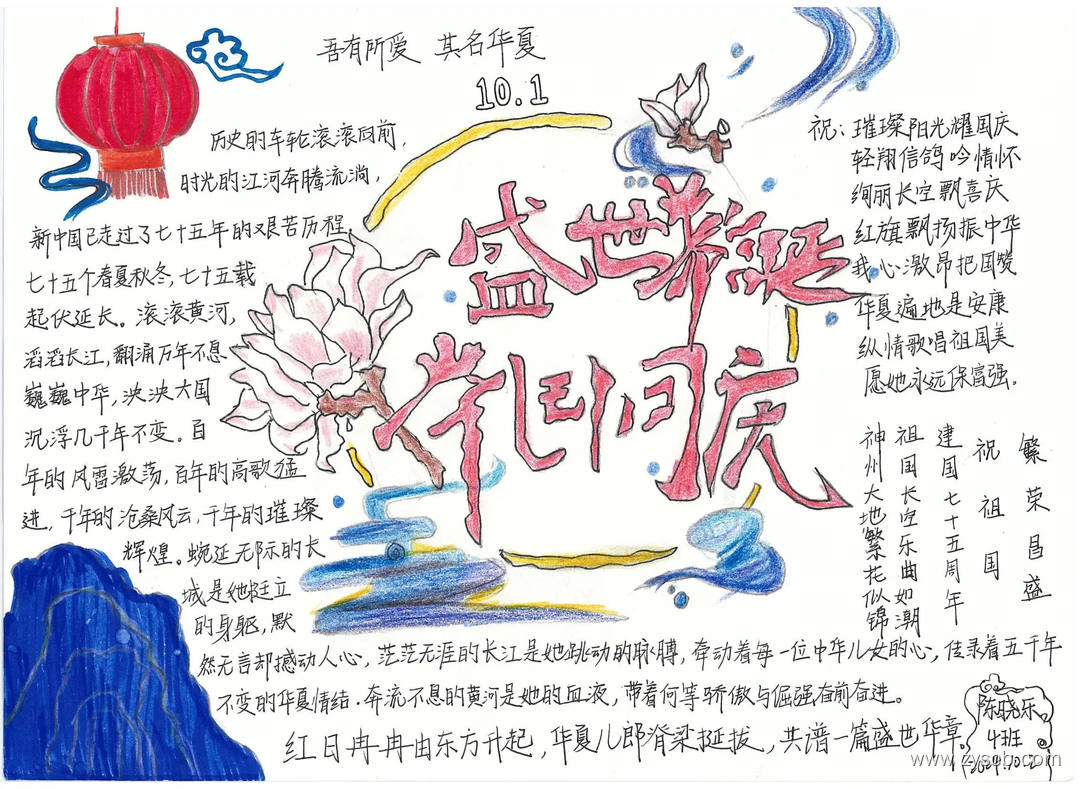 吾有所爱 其名华夏
10.1
历史的车轮滚滚向前,
时光的江河奔腾流淌,
新中国已走过了七十五年的艰苦历程
七十五个春夏秋冬,七十五载
起伏延长。滚滚黄河,
滔滔长江,翻涌万年不息
巍巍中华,泱泱大国
沉浮几千年不变。百
年的风雷激荡,百年的高歌猛
进,千年的沧桑风云,千年的璀璨
辉煌。蜿延无际的长
城是她旺立
的身躯,默
然无言却撼动人心,茫茫无涯的长江是她跳动的脉膊,牵动着每一位中华儿女的心,传录着五千年
不变的华夏情结.奔流不息的黄河是她的血液,带着何等骄傲与倔强奋前奋进。
红日冉冉由东方升起,华夏儿郎脊梁延拔,共谱一篇盛世华章。
盛世耀
举国同庆
祝:璀璨阳光耀国庆
轻翔信鸽吟情怀
绚丽长空飘喜庆
红旗飘扬振中华
我心激昂把国赞
华夏遍地是安康
纵情歌唱祖国美
愿她永远保富强。
繁荣昌盛
祝祖国
建国七十五周年
祖国长空乐曲如潮
神州大地繁花似锦
陈晓乐
4班
2024.10.2
www.zyscb.com